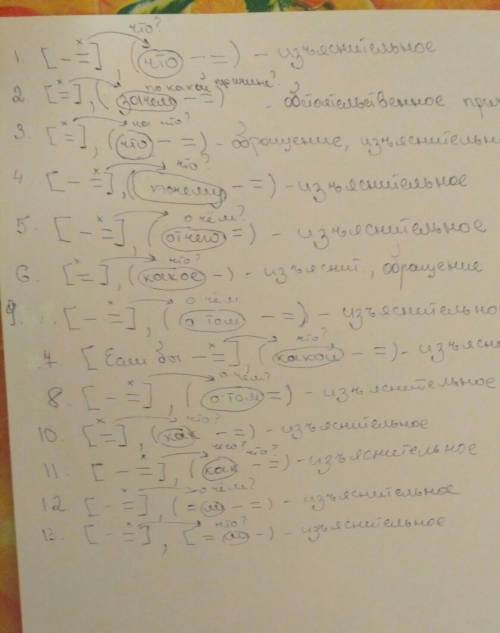 1. [ – = ], что? (что – =) – изъяснительное
2 [ = ], по какой причине? (зачем – =) – обстоятельственное при
3. [ = ], на что? (что – =) – обращение, изъяснительн
4 [ – = ], что? (почему – =) – изъяснительное
5. [ – = ], о чём? (отчего =) – изъяснительное
6. [ = ], что? (какое – ) – изъяснит., обращение
9. [ – = ], о чём (о том – =) – изъяснительно
7 [Если бы – = ], что? (какой – =) – изъясн
8. [ – = ], о чём? (о том =) – изъяснительное
10. [ = ], что? (как – =) – изъяснительное
11. [ – = ], чего? что? (как – =) – изъяснительное
12. [ – = ], о чём? ( = ли – =) – изъяснительное
13. [ – = ], что? [ = ли – ) – изъяснительное